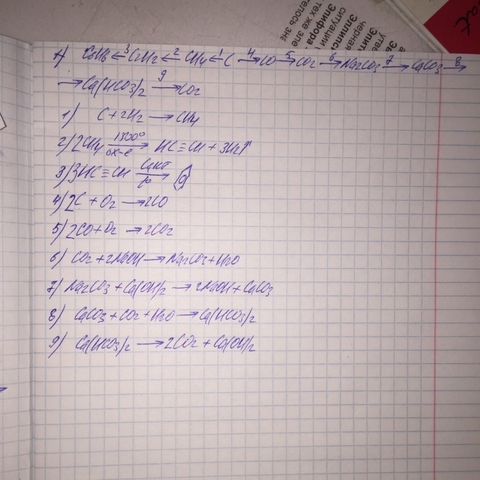 1) C6H6 ←3 C2H2 ←2 CH4 ←1 C 4→ CO 5→ CO2 6→ Na2CO3 7→ CaCO3 8→
→ Ca(HCO3)2 9→ CO2
1) C + 2H2 → CH4
2) 2CH4 1500° ох-е → HC≡CH + 3H2↑
3) 3HC≡CH Cакт t° →
4) 2C + O2 → 2CO
5) 2CO + O2 → 2CO2
6) CO2 + 2NaOH → Na2CO3 + H2O
7) Na2CO3 + Ca(OH)2 → 2NaOH + CaCO3
8) CaCO3 + CO2 + H2O → Ca(HCO3)2
9) Ca(HCO3)2 → 2CO2 + Ca(OH)2
Эпифора
ситуации
Эллипсис
черная